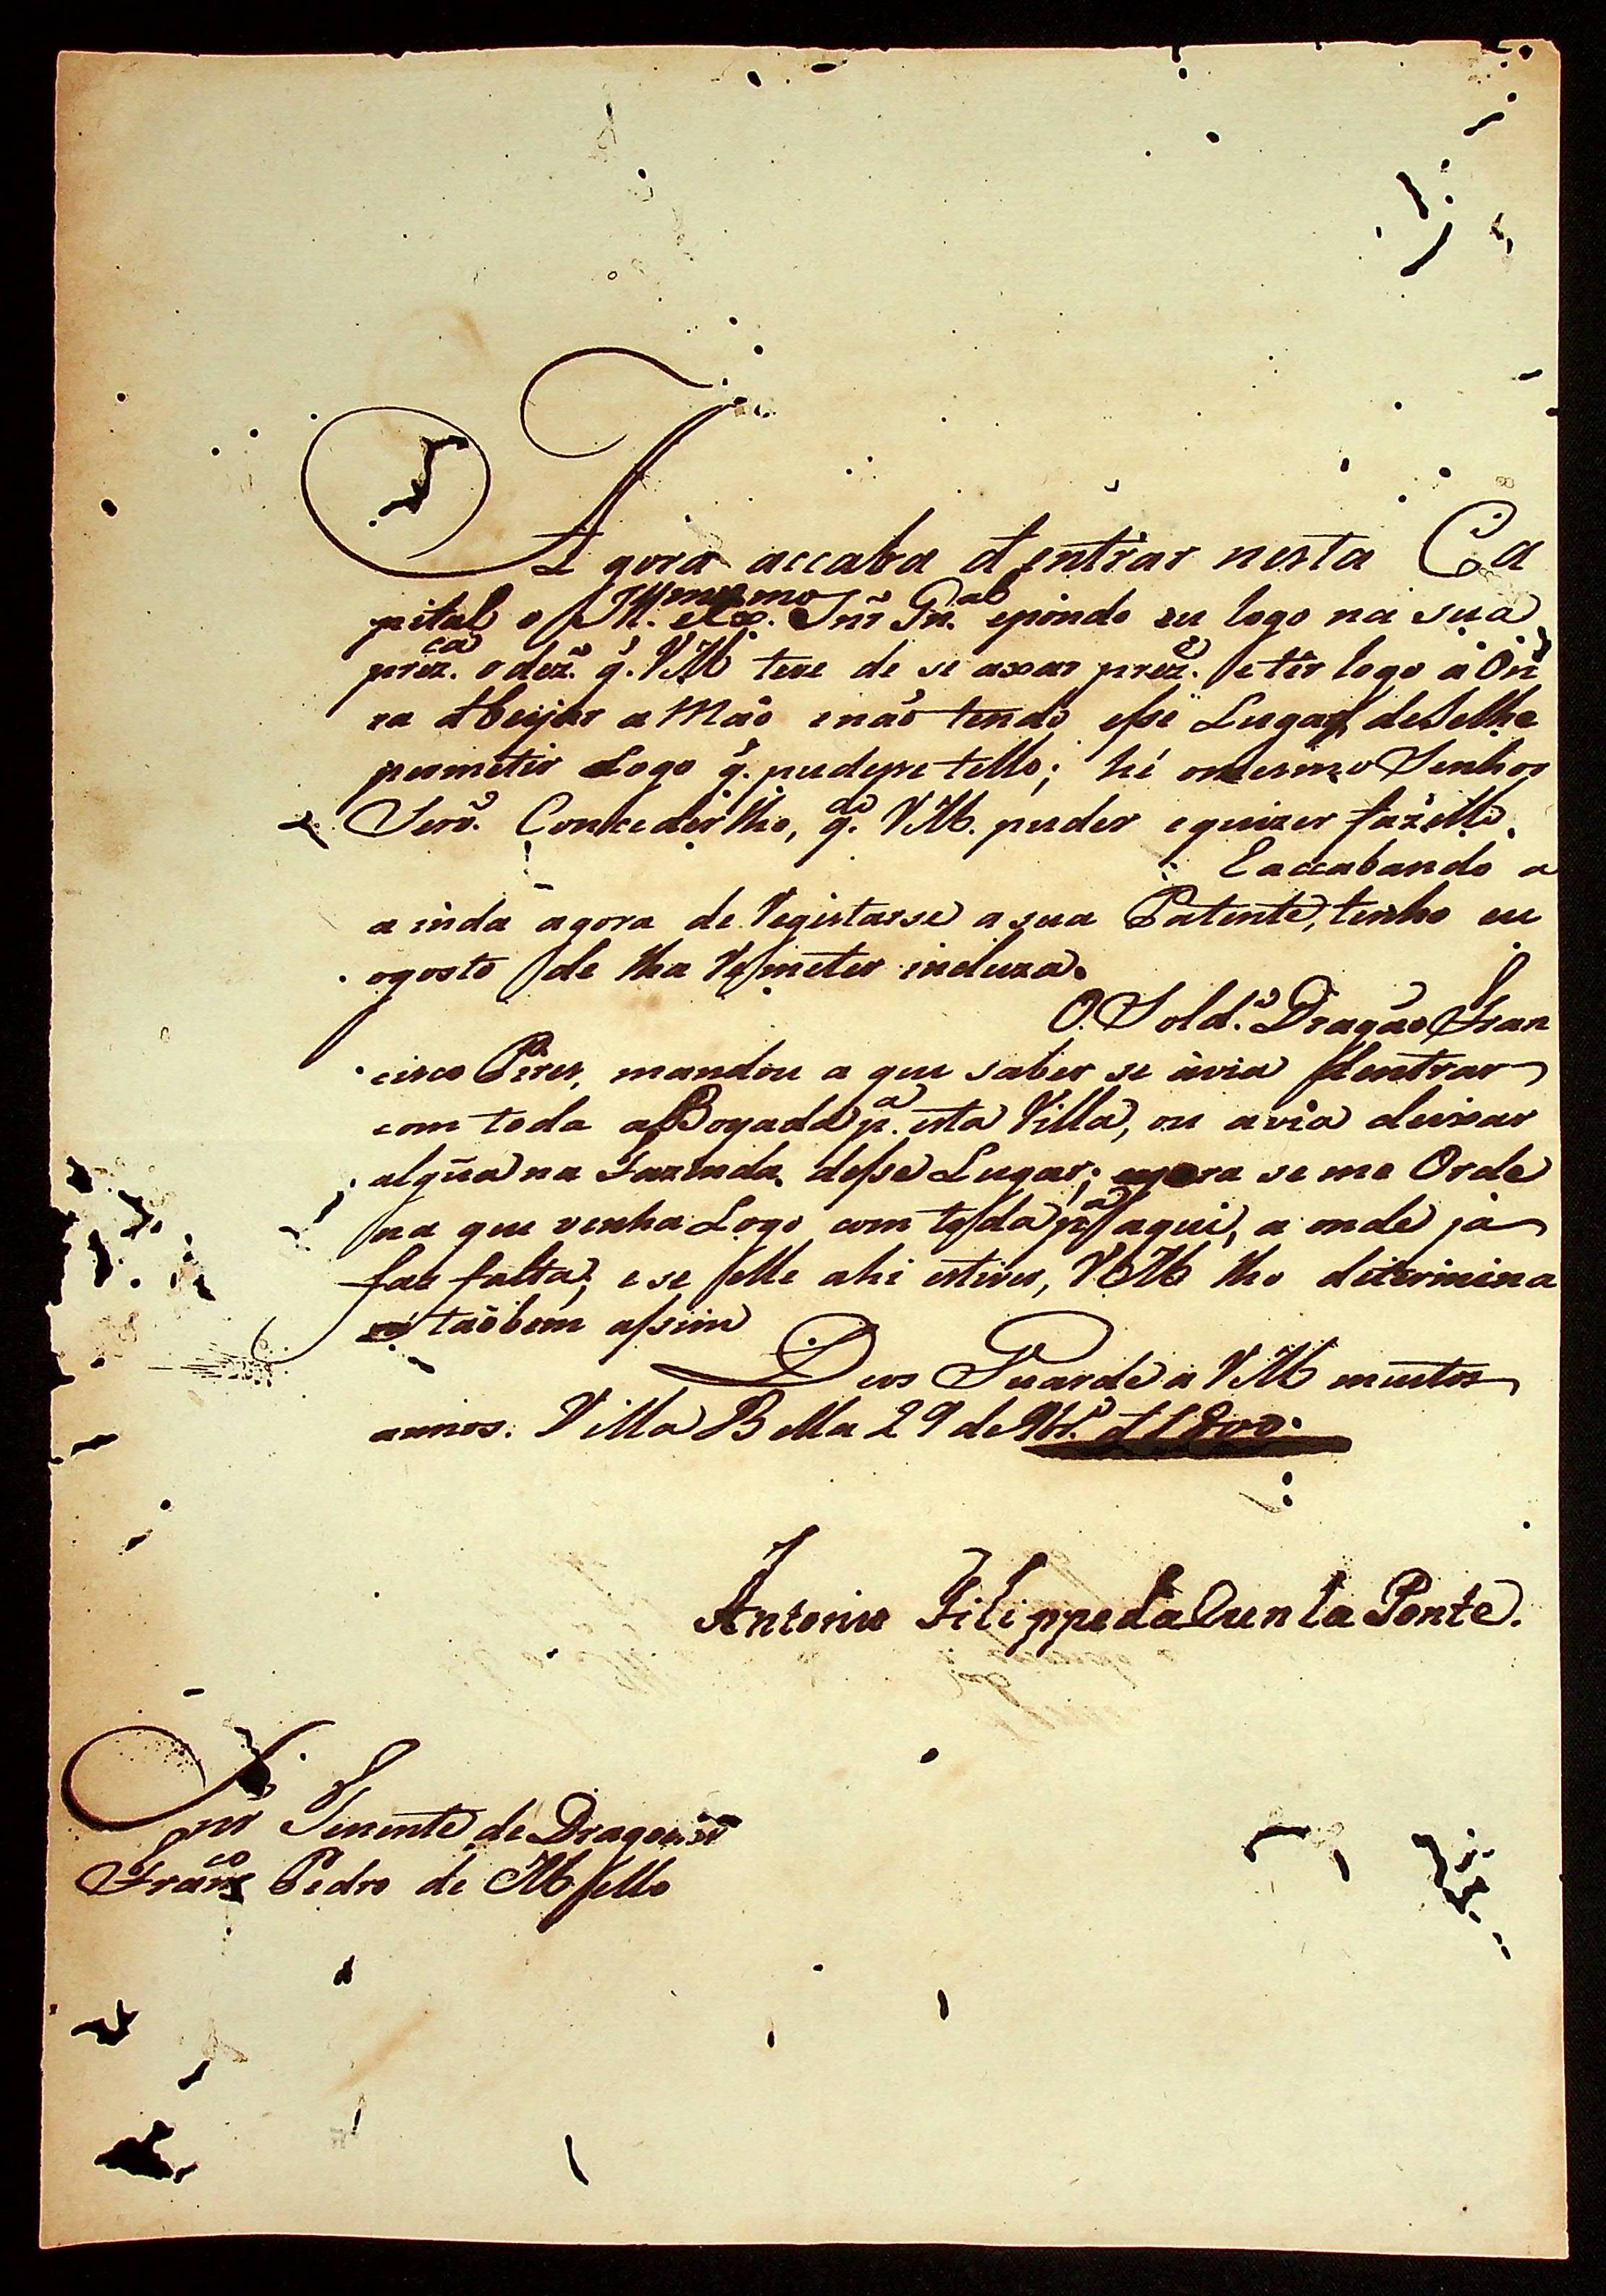 Agora accaba d'entrar nesta Ca
pital o Ill.mo e Ex.mo Snr̃ Gn.al epondo eu logo na sua
prez.ca o dez.o q̃. VM teve de se axar prez.e e ter logo a On̄
ra d beijar a Mão enão tendo esse Lugar, de Selhe
permetir Logo q̃. pudesse tello; hé omesmo Senhor
Serv.o Concederlho, q.do VM. puder e quizer fazello.
E accabando a
ainda agora de Registarse a sua Patente, tenho eu
ogosto de lha Remeter incluza.
O Sold.o Dragão Fran
cisco Pires, mandou a qui saber se avia d'entrar
com toda a Boyada p.a esta Villa, ou avia deixar
algũa na Fazenda desse Lugar; agora se me Orde
na que venha Logo com toda p.a aqui, a onde já
faz falta; e se elle ahi estiver, VM lho determina
rá taõbem assim
Deos Guarde a VM muitos
annos. Villa Bella 29 de 9br.o d 1800.
Antonio Filippe da Cunha Ponte.
Snr̃ Tenente de Dragoens
Fran.co Pedro de Mello